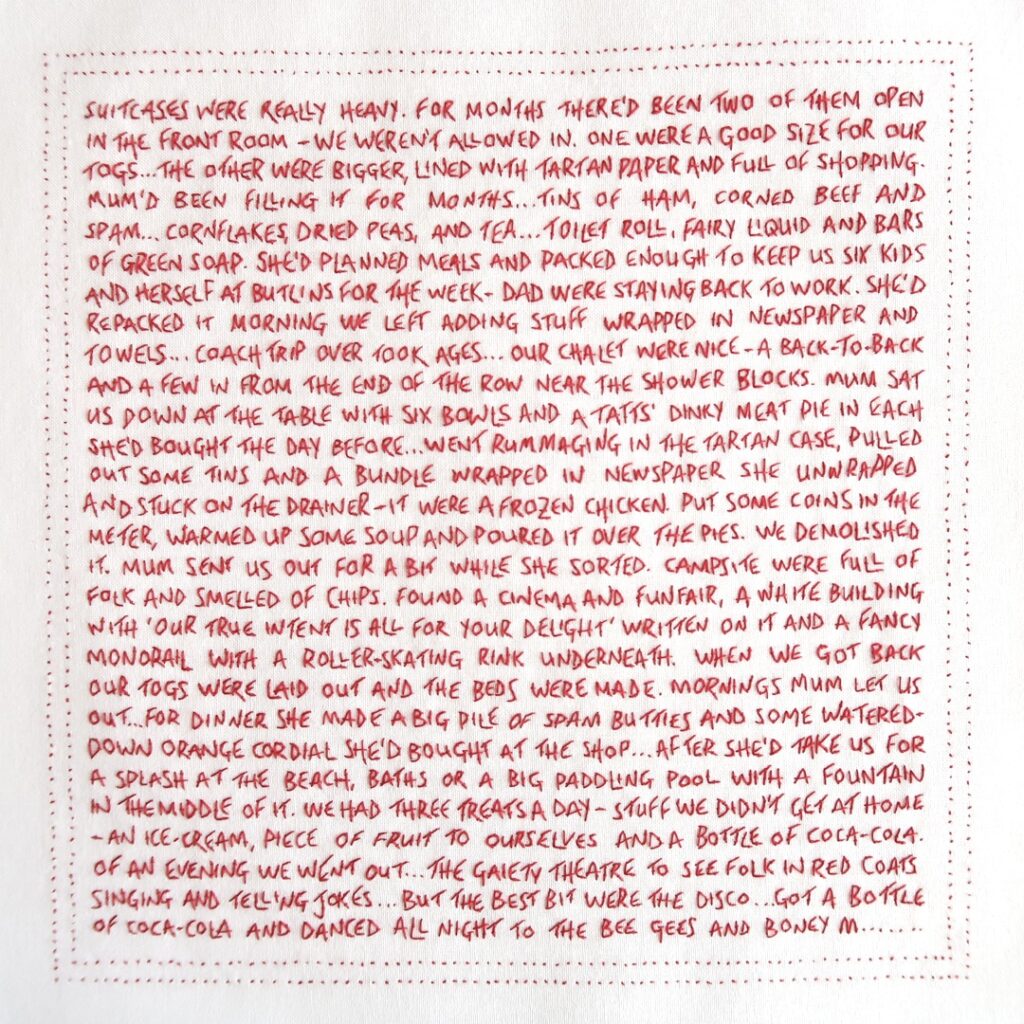 SUITCASES WERE REALLY HEAVY. FOR MONTHS THERE'D BEEN TWO OF THEM OPEN
IN THE FRONT ROOM - WE WEREN'T ALLOWED IN. ONE WERE A GOOD SIZE FOR OUR
TOGS...THE OTHER WERE BIGGER, LINED WITH TARTAN PAPER AND FULL OF SHOPPING.
MUM'D BEEN FILLING IT FOR MONTHS...TINS OF HAM, CORNED BEEF AND
SPAM... CORNFLAKES, DRIED PEAS, AND TEA...TOILET ROLL, FAIRY LIQUID AND BARS
OF GREEN SOAP. SHE'D PLANNED MEALS AND PACKED ENOUGH TO KEEP US SIX KIDS
AND HERSELF AT BUTLINS FOR THE WEEK - DAD WERE STAYING BACK TO WORK. SHE'D
REPACKED IT MORNING WE LEFT ADDING STUFF WRAPPED IN NEWSPAPER AND
TOWELS... COACH TRIP OVER TOOK AGES... OUR CHALET WERE NICE - A BACK-TO-BACK
AND A FEW IN FROM THE END OF THE ROW NEAR THE SHOWER BLOCKS. MUM SAT
US DOWN AT THE TABLE WITH SIX BOWLS AND A TATTS' DINKY MEAT PIE IN EACH
SHE'D BOUGHT THE DAY BEFORE...WENT RUMMAGING IN THE TARTAN CASE, PULLED
OUT SOME TINS AND A BUNDLE WRAPPED IN NEWSPAPER SHE UNWRAPPED
AND STUCK ON THE DRAINER - IT WERE A FROZEN CHICKEN. PUT SOME COINS IN THE
METER, WARMED UP SOME SOUP AND POURED IT OVER THE PIES. WE DEMOLISHED
IT. MUM SENT US OUT FOR A BIT WHILE SHE SORTED. CAMPSITE WERE FULL OF
FOLK AND SMELLED OF CHIPS. FOUND A CINEMA AND FUNFAIR, A WHITE BUILDING
WITH 'OUR TRUE INTENT IS ALL FOR YOUR DELIGHT' WRITTEN ON IT AND A FANCY
MONORAIL WITH A ROLLER-SKATING RINK UNDERNEATH. WHEN WE GOT BACK
OUR TOGS WERE LAID OUT AND THE BEDS WERE MADE. MORNINGS MUM LET US
OUT...FOR DINNER SHE MADE A BIG PILE OF SPAM BUTTIES AND SOME WATERED-
DOWN ORANGE CORDIAL SHE'D BOUGHT AT THE SHOP...AFTER SHE'D TAKE US FOR
A SPLASH AT THE BEACH, BATHS OR A BIG PADDLING POOL WITH A FOUNTAIN
IN THE MIDDLE OF IT. WE HAD THREE TREATS A DAY - STUFF WE DIDN'T GET AT HOME
- AN ICE-CREAM, PIECE OF FRUIT TO OURSELVES AND A BOTTLE OF COCA-COLA.
OF AN EVENING WE WENT OUT...THE GAIETY THEATRE TO SEE FOLK IN RED COATS
SINGING AND TELLING JOKES...BUT THE BEST BIT WERE THE DISCO...GOT A BOTTLE
OF COCA-COLA AND DANCED ALL NIGHT TO THE BEE GEES AND BONEY M.......